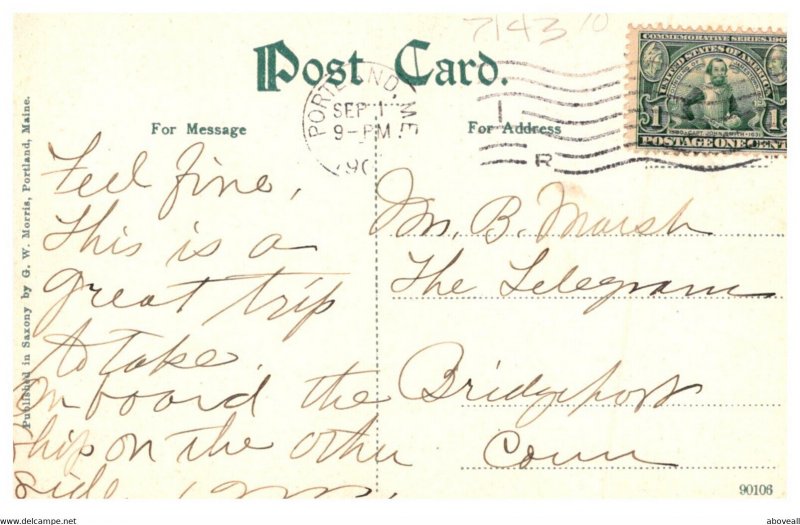 7143 10
Post Card.
COMMEMORATIVE SERIES 1907
UNITED STATES OF AMERICA
1580 CAPT. JOHN SMITH 1631
1 1
POSTAGE ONE CENT
PORTLAND, ME.
SEP 1
9-PM
190
1
R
For Message
For Address
Published in Saxony by G. W. Morris, Portland, Maine.
Feel fine,
This is a
great trip
to take.
on board the
ship on the other
side
B. Marsh
The Telegram
Bridgeport
Conn
90106
aboveall